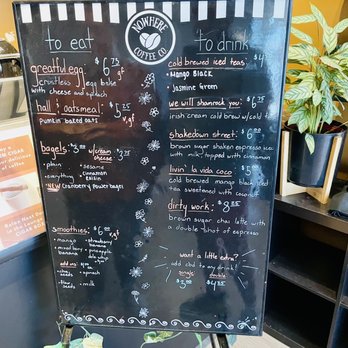 NOWHERE
COFFEE CO.
to eat
greatful egg $6.75
crustless egg bake gf
with cheese and spinach
hall & oatsmeal: $5.25
pumpkin baked oats v,gf
bagels: $3.00 w/cream cheese $3.75
-plain -sesame
-everything -cinnamon raisin
*NEW* Cranberry Power bagel
smoothies: $6.00
v,gf
-mango -strawberry banana
-mixed berry banana -pineapple
add ons:
-chia seeds -spinach
-flax seeds -milk
to drink
cold brewed iced teas: $4
- Mango Black
- Jasmine Green
we will shamrock you: $6.75
irish cream cold brew w/ cold
shakedown street: $6.00
brown sugar shaken espresso iced
with milk topped with cinnamon
livin' la vida coco: $5.00
cold brewed mango black iced
tea sweetened with coconut
dirty work: $
brown sugar chai latte with
a double shot of espresso
want a little extra?
add cbd to any drink!
single double
$3.00 $4.75